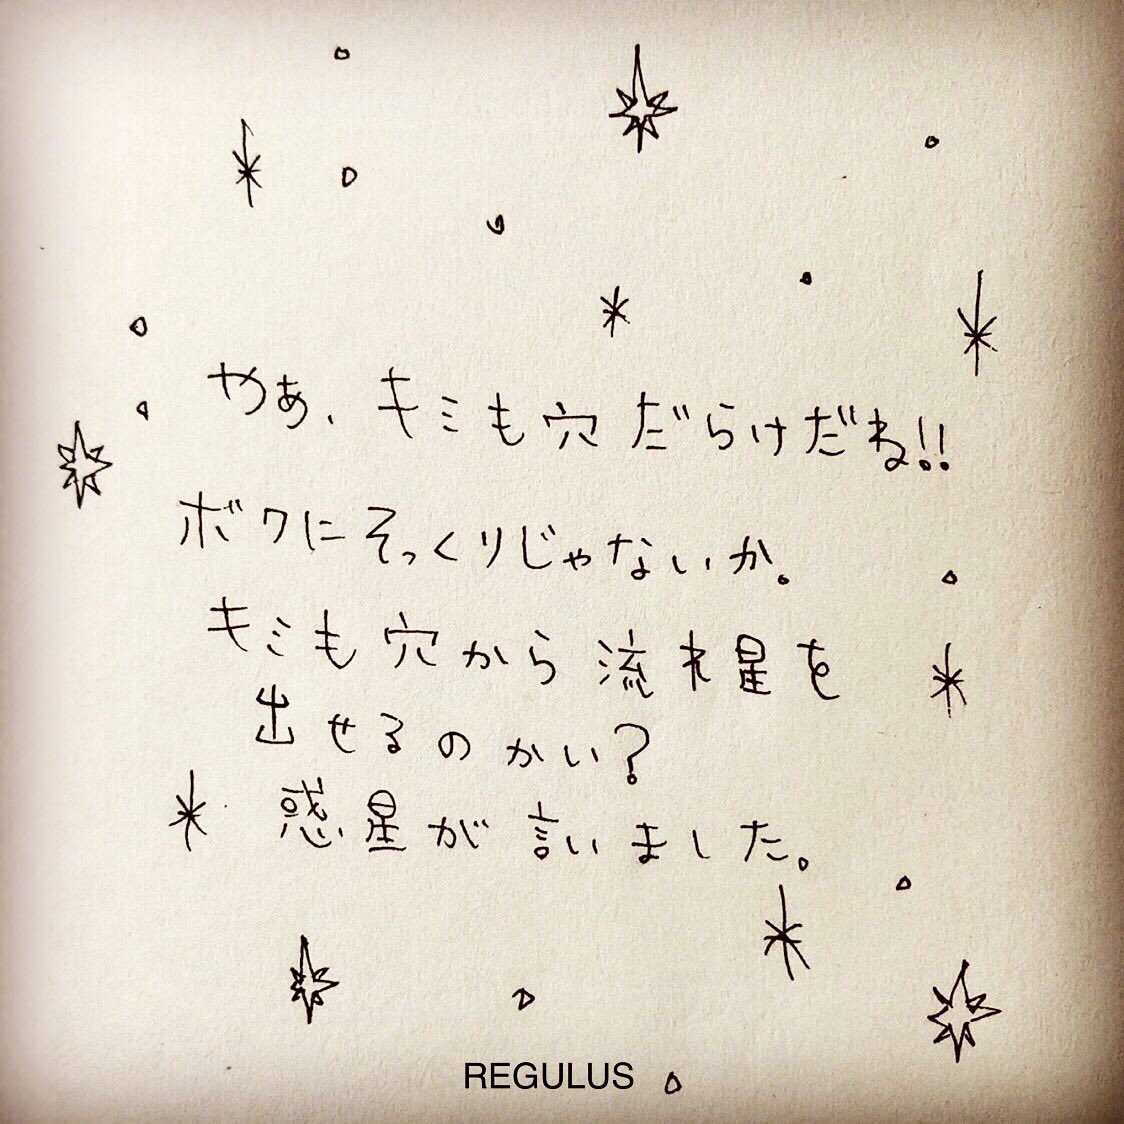 やぁ、キミも穴だらけだね!!
ボクにそっくりじゃないか。
キミも穴から流れ星を
出せるのかい?
惑星が言いました。
REGULUS